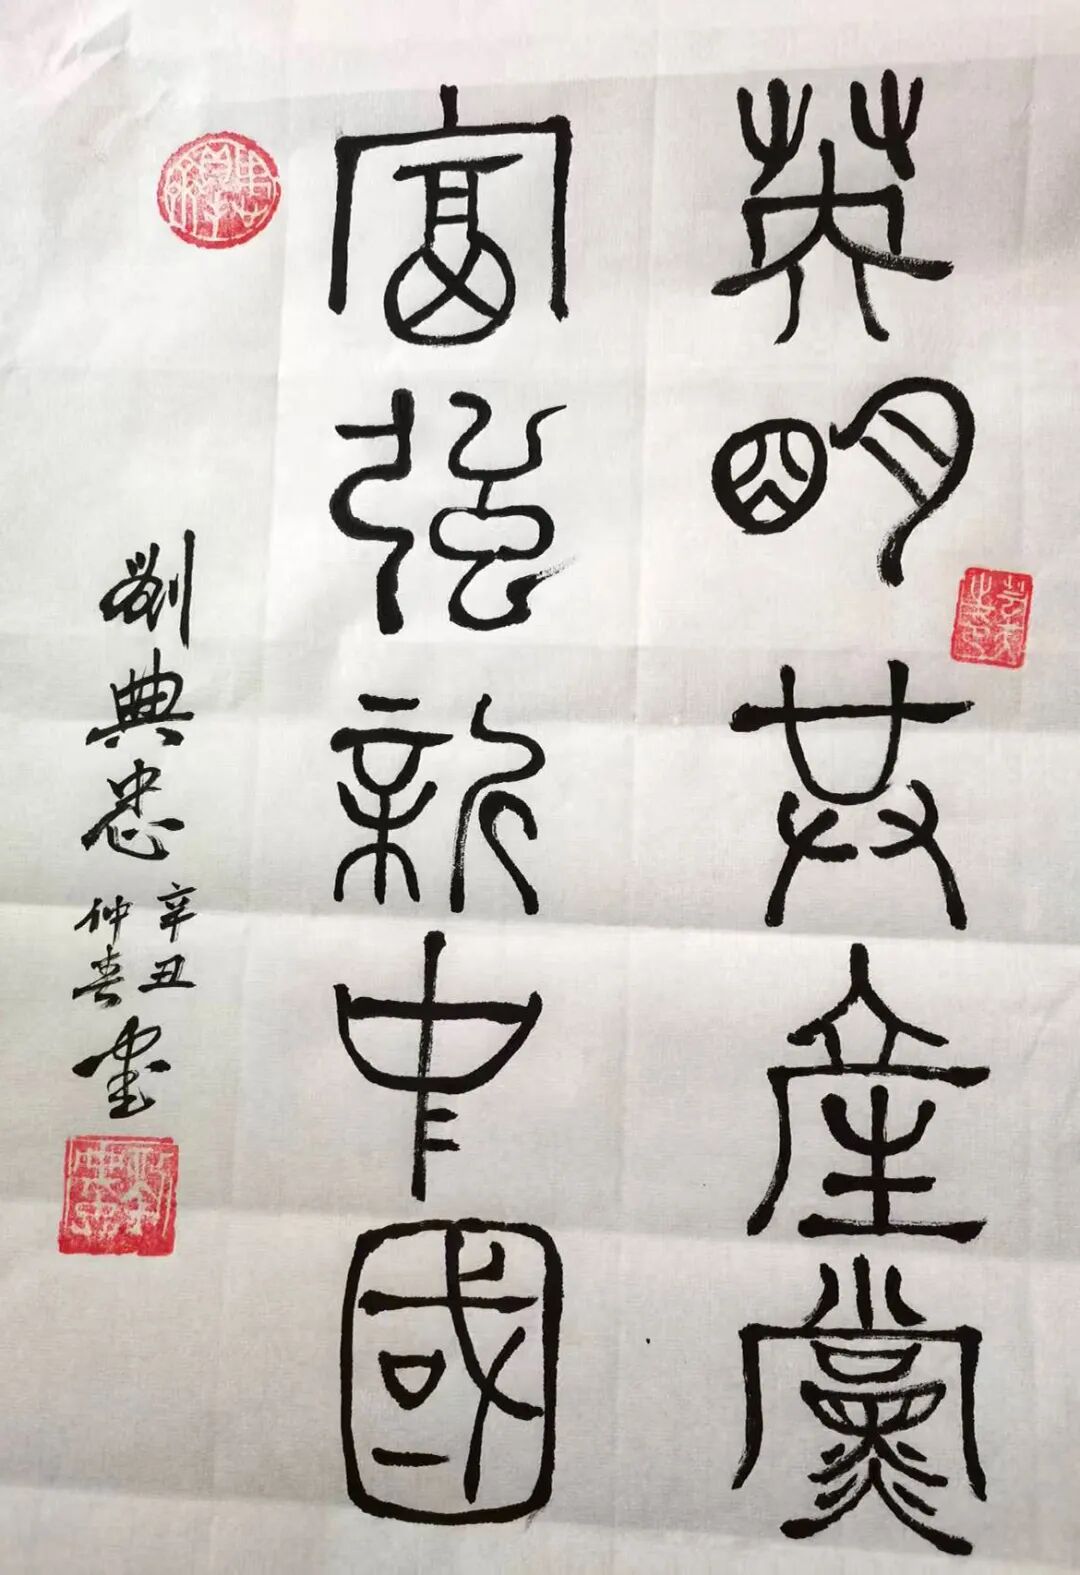 英明共產黨
富強新中國
劉典忠
辛丑
仲春
書